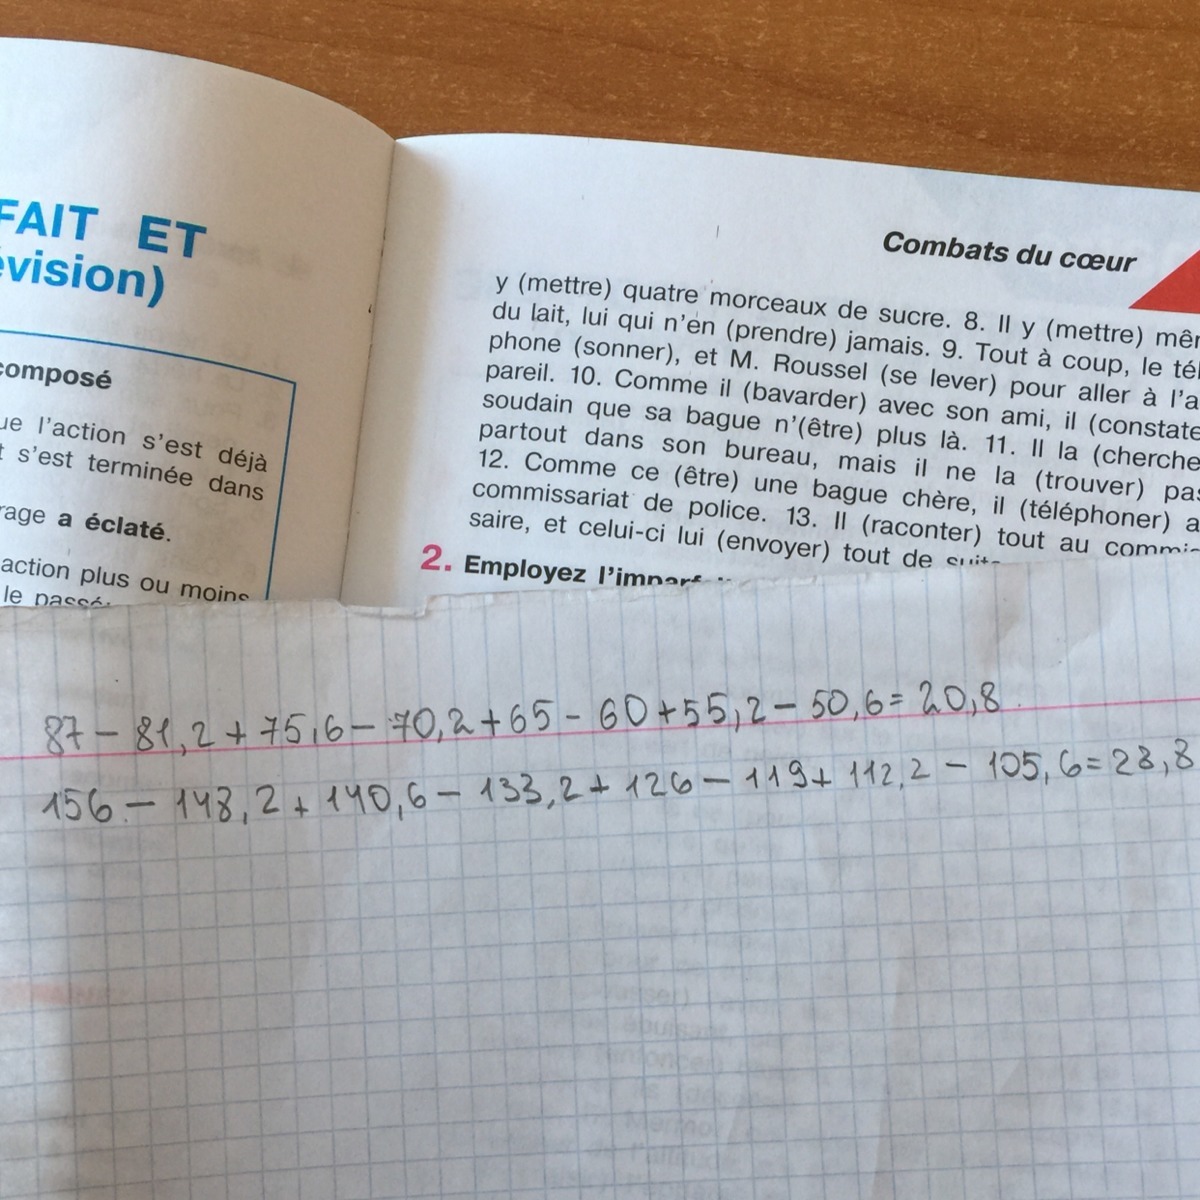 FAIT ET
évision)
composé
ue l'action s'est déjà
t s'est terminée dans
rage a éclaté.
action plus ou moins
le passé:
Combats du cœur
y (mettre) quatre morceaux de sucre. 8. Il y (mettre) mêm
du lait, lui qui n'en (prendre) jamais. 9. Tout à coup, le tél
phone (sonner), et M. Roussel (se lever) pour aller à l'a
pareil. 10. Comme il (bavarder) avec son ami, il (constate
soudain que sa bague n'(être) plus là. 11. Il la (cherche
partout dans son bureau, mais il ne la (trouver) pas
12. Comme ce (être) une bague chère, il (téléphoner) a
commissariat de police. 13. Il (raconter) tout au commis
saire, et celui-ci lui (envoyer) tout de suite
2. Employez l'imparf
87 - 81,2 + 75,6 - 70,2 + 65 - 60 + 55,2 - 50,6 = 20,8
156 - 148,2 + 140,6 - 133,2 + 126 - 119 + 112,2 - 105,6 = 28,8